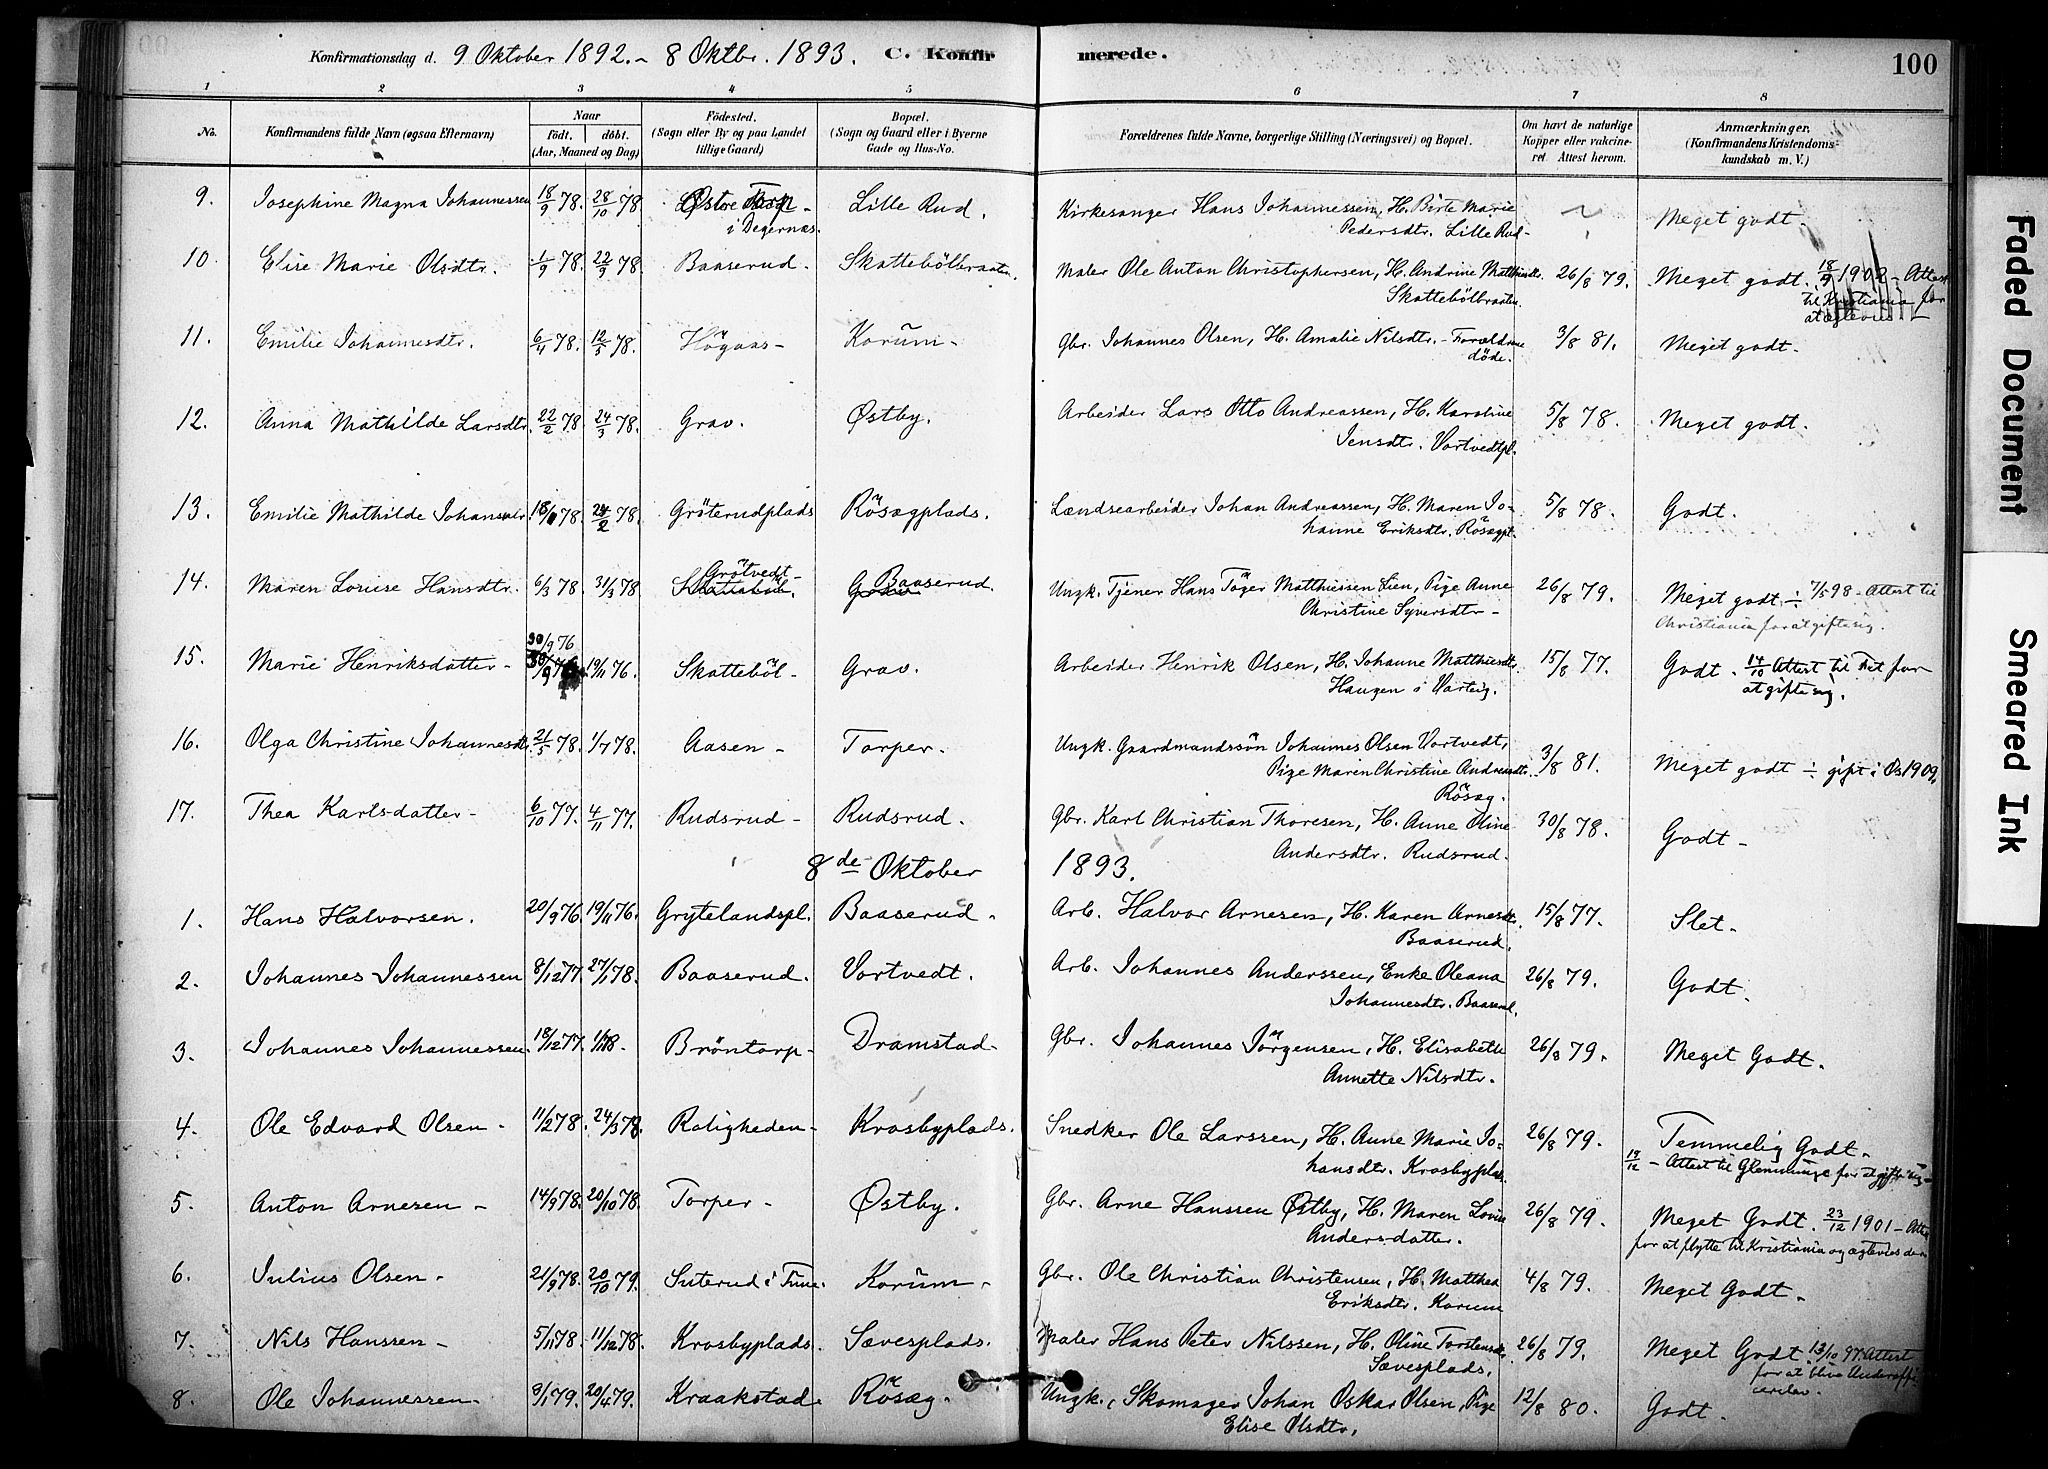 Konfirmationsdag d. 9 Oktober 1892. - 8 Oktbr. 1893. C. Konfirmerede. 100
1 2 3 4 5 6 7 8
No. Konfirmandens fulde Navn (ogsaa Efternavn) Naar født. døbt. (Aar, Maaned og Dag) Fødested. (Sogn eller By og paa Landet tillige Gaard) Bopæl. (Sogn og Gaard eller i Byerne Gade og Hus-No. Forældrenes fulde Navne, borgerlige Stilling (Næringsvei) og Bopæl. Om havt de naturlige Kopper eller vakcineret. Attest herom. Anmærkninger. (Konfirmandens Kristendomskundskab m. V.)
9. Josephine Magna Johannessen 18/9 78. 28/10 78 Østre Torp - Lille Rud. Kirkesanger Hans Johannessen, H. Birte Marie Meget godt.
i Degernæs. Pedersdtr. Lille Rud -
10. Elise Marie Olsdtr. 1/9 78. 22/9 78. Baaserud. Skattebölbraaten. Maler Ole Anton Christophersen, H. Andrine Matthisdtr. 26/8 79. Meget godt. 18/9 1902 - Attest
Skattebölbraaten. til Kristiania for
at ægtevies.
11. Emilie Johannesdtr. 6/4 78. 12/5 78. Högaas - Korum - Gbr. Johannes Olsen, H. Amalie Nilsdtr. - Forældrene 3/8 81. Meget godt -
döde.
12. Anna Mathilde Larsdtr. 22/2 78. 24/3 78. Grav. Østby. Arbeider Lars Otto Andreassen, H. Karoline 5/8 78. Meget godt.
Jensdtr. Vortvedtpl.
13. Emilie Mathilde Johansdtr. 78. 24/2 78. Gröterudplads Rösægplads. Lændsearbeider Johan Andreassen, H. Maren Jo- 5/8 78. Godt.
hanne Eriksdtr. Rösægpl.
14. Maren Louise Hansdtr. 6/3 78. 31/3 78 Grötvedt - Baaserud. Ungk. Tjener Hans Töger Matthiessen Lien, Pige Anne 26/8 79. Meget godt ÷ 7/5 98 - Attest til
Christine Syversdtr - Christiania for at gifte sig.
15. Marie Henriksdatter - 30/9 76 19/11 76. Skatteböl - Grav. Arbeider Henrik Olsen, H. Johanne Matthisdtr. 15/8 77. Godt. 14/10 Attest til for
Haugen i Varteig. at gifte sig.
16. Olga Christine Johannesdtr. 21/5 78. 1/7 78. Aasen - Torper. Ungk. Gaardmandssön Johannes Olsen Vortvedt, 3/8 81. Meget godt ÷ gift i Os 1909.
Pige Maren Christine Andreasdtr.
Rösæg.
17. Thea Karlsdatter - 6/10 77. 4/11 77. Rudsrud - Rudsrud. Gbr. Karl Christian Thoresen, H. Anne Oline 30/8 78. Godt -
Andersdtr. Rudsrud.
8de Oktober 1893.
1. Hans Halvorsen. 20/9 76. 19/11 76. Grytelandspl. Baaserud. Arb. Halvor Arnesen, H. Karen Arnesdtr. 15/8 77. Slet -
Baaserud.
2. Johannes Johannessen 8/12 77. 27/1 78. Baaserud. Vortvedt. Arb. Johannes Anderssen, Enke Oleana 26/8 79. Godt.
Johannesdtr. Baaserud.
3. Johannes Johannessen. 18/12 77. Bröntorp - Dramstad - Gbr. Johannes Jörgensen, H. Elisabeth 26/8 79. Meget Godt.
Annette Nilsdtr.
4. Ole Edvard Olsen - 11/2 78. 24/3 78. Roligheden - Krosbyplads. Snedker Ole Larssen, H. Anne Marie Jo- 26/8 79. Temmelig Godt -
hansdtr. Krosbyplds. - Attest til Glemminge for at gifte sig -
5. Anton Arnesen - 14/9 78. 20/10 78. Torper - Østby. Gbr. Arne Hanssen Østby, H. Maren Lovise 26/8 79. Meget Godt. 23/12 1901 - Attest
Andersdatter. for at flytte til Kristiania og ægtevies der.
6. Julius Olsen - 21/9 78. 20/10 79. Suterud i Tune. Korum - Gbr. Ole Christian Christensen, H. Matthea 4/8 79. Meget Godt -
Eriksdtr. Korum
7. Nils Hanssen - 5/11 78. 11/12 78. Krosbyplads. Sævesplads. Maler Hans Peter Nilssen, H. Oline Torstensdtr. 26/8 79. Meget Godt. 13/10 97. Attest
Sævesplads. for at blive Underoffi-
cerelev.
8. Ole Johannessen - 79. 20/4 79. Kraakstad. Rösæg - Ungk., Skomager Johan Oskar Olsen, Pige 12/8 80. Godt.
Elise Olsdtr.
Faded Document
Smeared Ink